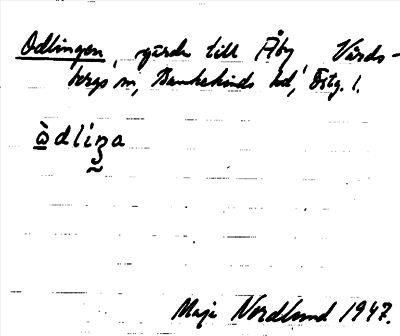 Odlingen, gärde till Åby, Vårds-
bergs sn, Bankekinds hd, Östg. l.
òdlıŋa
Maja Nordlund 1947.